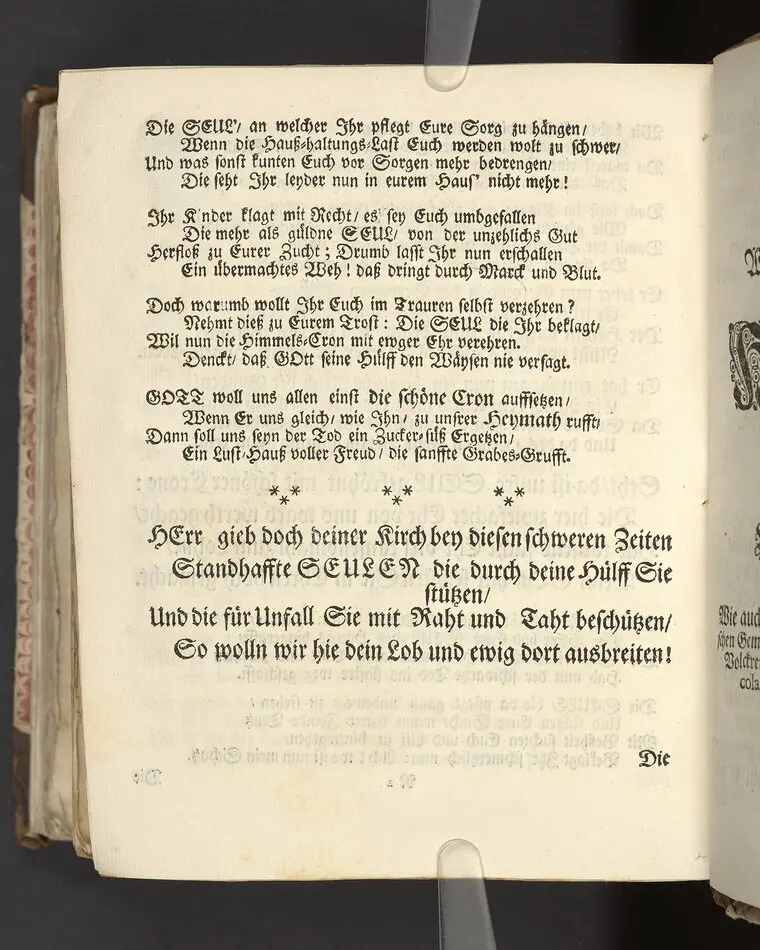 Die SEUL'/ an welcher Ihr pflegt Eure Sorg zu hängen/
Wenn die Hauß-haltungs-Last Euch werden wolt zu schwer/
Und was sonst kunten Euch vor Sorgen mehr bedrengen/
Die seht Ihr leyder nun in eurem Haus' nicht mehr!
Ihr K nder klagt mit Recht/ es sey Euch umbgefallen
Die mehr als güldne SEUL/ von der unzehlichs Gut
Herfloß zu Eurer Zucht; Drumb lasst Ihr nun erschallen
Ein übermachtes Weh! daß dringt durch Marck und Blut.
Doch warumb wollt Ihr Euch im Trauren selbst verzehren?
Nehmt dieß zu Eurem Trost: Die SEUL die Ihr beklagt/
Wil nun die Himmels-Cron mit ewger Ehr verehren.
Denckt/ daß GOtt seine Hülff den Wäysen nie versagt.
GOTT woll uns allen einst die schöne Cron auffsetzen/
Wenn Er uns gleich/ wie Ihn/ zu unsrer Heymath rufft/
Dann soll uns seyn der Tod ein Zucker-süß Ergetzen/
Ein Lust-Hauß voller Freud/ die sanffte Grabes-Grufft.
* * * * * * * * *
HErr gieb doch deiner Kirch bey diesen schweren Zeiten
Standhaffte SEULEN die durch deine Hülff Sie
stützen/
Und die für Unfall Sie mit Raht und Taht beschützen/
So wolln wir hie dein Lob und ewig dort ausbreiten!
Die
Wie auch
schen Gem
Volckre
cola